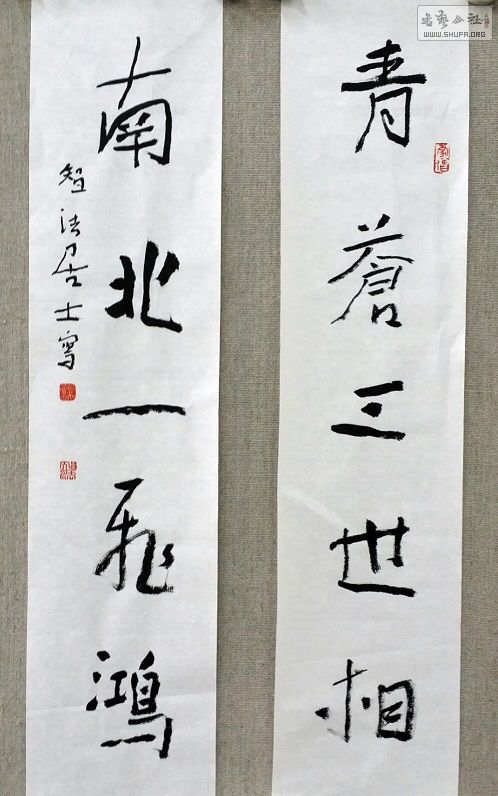 書藝公社
WWW.SHUFA.ORG
青蒼三世相
南北一飛鴻
智法居士寫